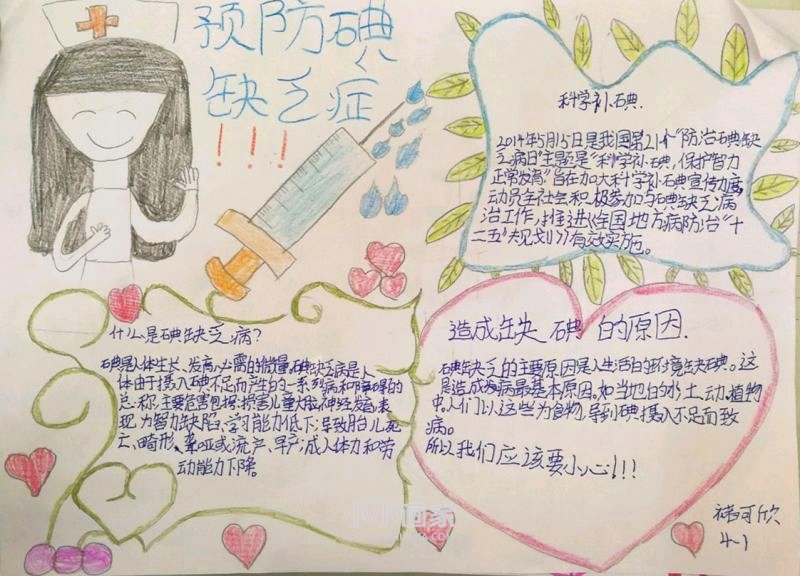 预防碘
缺乏症
!!!
科学补碘.
2014年5月15日是我国第21个“防治碘缺
乏病日”主题是“科学补碘,保护智力
正常发育”旨在加大科学补碘宣传力度,
动员全社会积极参加与碘缺乏病
治工作,推进《全国地方病防治“十
二五”规划》有效实施。
什么是碘缺乏病?
碘是人体生长、发育必需的微量,碘缺乏病是人
体由于摄入碘不足而产生的一系列病和障碍的
总称.主要危害包括:损害儿童大脑神经发育,表
现为智力缺陷、学习能力低下;导致胎儿死
亡、畸形、聋哑或流产、早产;成人体力和劳
动能力下降。
造成缺碘的原因.
碘缺乏的主要原因是人生活的环境缺碘。这
是造成发病最基本原因。如当地的水土、动、植物
中。人们以这些为食物,导到碘摄入不足而致
病。
所以我们应该要小心!!!
褚可欣
4.1
小小画家